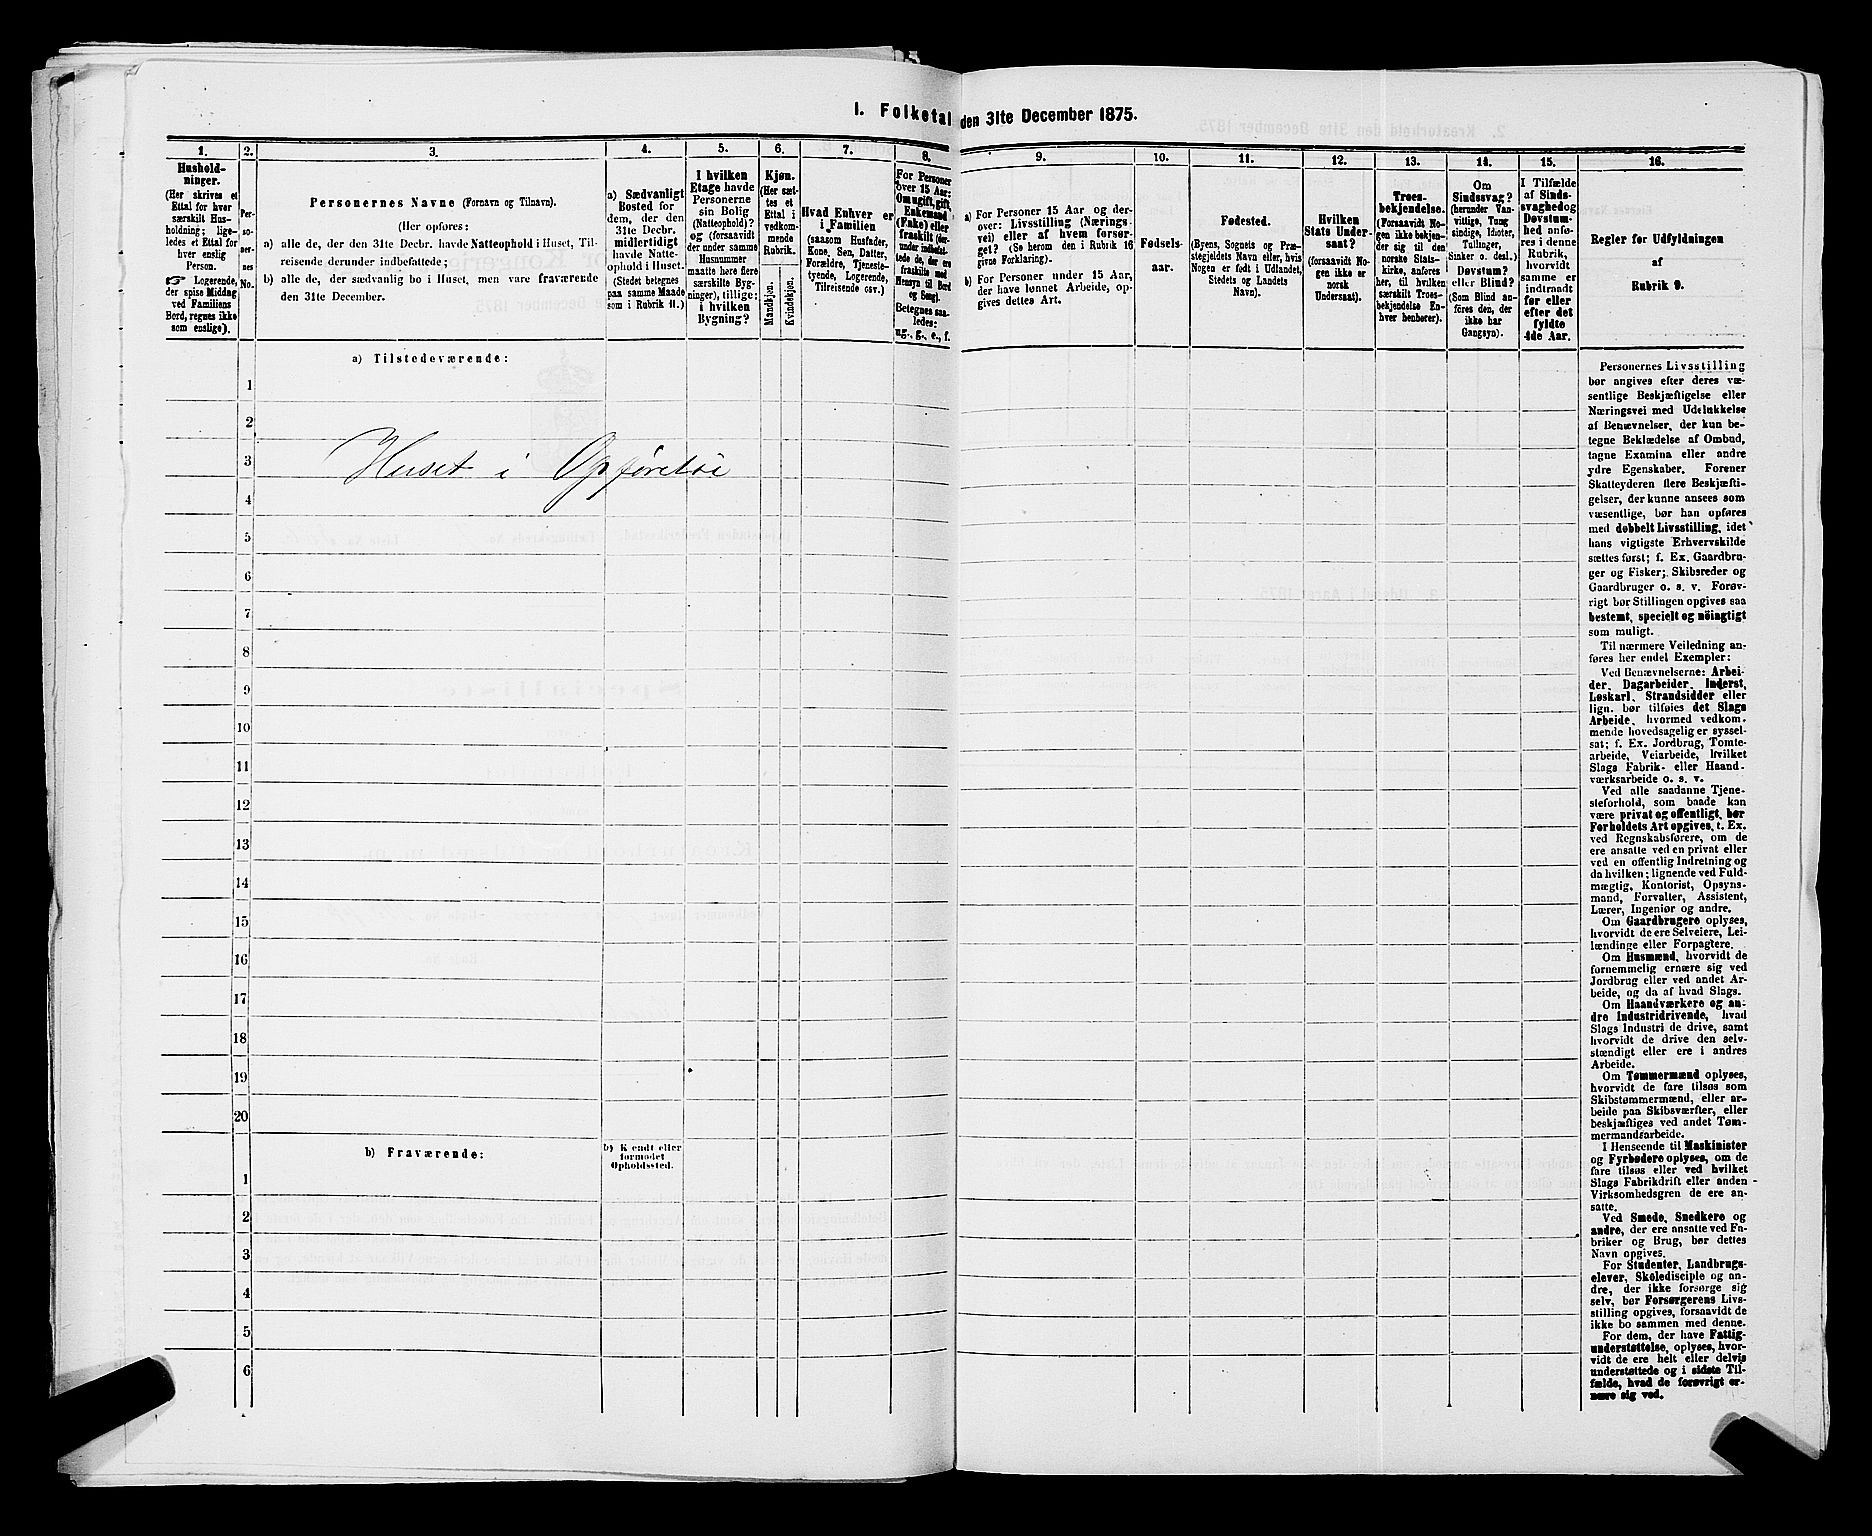 I. Folketal den 31te December 1875.
1.
2.
3.
4.
5.
6.
7.
8.
9.
10.
11.
12.
13.
14.
15.
16.
Hushold-
ninger.
(Her skrives et
Ettal for hver
særskilt Hus-
holdning; lige-
ledes et Ettal for
hver enslig
Person.
☞ Logerende,
der spise Middag
ved Familiens
Bord, regnes ikke
som enslige).
Per-
so-
ner-
nes
No.
Personernes Navne (Fornavn og Tilnavn).
(Her opføres:
a) alle de, der den 31te Decbr. havde Natteophold i Huset, Til-
reisende derunder indbefattede;
b) alle de, der sædvanlig bo i Huset, men vare fraværende
den 31te December.
a) Sædvanligt
Bosted for
dem, der den
31te Decbr.
midlertidigt
havde Natte-
ophold i Huset.
(Stedet betegnes
paa samme Maade
som i Rubrik 11.)
I hvilken
Etage havde
Personerne
sin Bolig
(Natteophold)?
og (forsaavidt
der under samme
Husnummer
maatte høre flere
særskilte Byg-
ninger), tillige:
i hvilken
Bygning?
Kjøn.
(Her sæt-
tes et
Ettal i
vedkom-
mende
Rubrik.
Mandkjøn.
Kvindekjøn.
Hvad Enhver er
i Familien
(saasom Husfader,
Kone, Søn, Datter,
Forældre, Tjeneste-
tyende, Logerende,
Tilreisende osv.)
For Personer
over 15 Aar:
Om ugift, gift,
Enkemand
(Enke) eller
fraskilt (der-
under indbefat-
tede de, der ere
fraskilte med
Hensyn til Bord
og Seng).
Betegnes saa-
ledes:
ug., g., e., f.
a) For Personer 15 Aar og der-
over: Livsstilling (Nærings-
vei) eller af hvem forsør-
get? (Se herom den i Rubrik 16
givne Forklaring).
b) For Personer under 15 Aar,
der have lønnet Arbeide, op-
gives dettes Art.
Fødsels-
aar.
Fødested.
(Byens, Sognets og Præ-
stegjeldets Navn eller, hvis
Nogen er født i Udlandet,
Stedets og Landets
Navn).
Hvilken
Stats Under-
saat?
(forsaavidt No-
gen ikke er
norsk
Undersaat).
Troes-
bekjendelse.
(Forsaavidt No-
gen ikke bekjen-
der sig til den
norske Stats-
kirke, anføres
her, til hvilken
særskilt Troes-
bekjendelse En-
hver henhører).
Om
Sindssvag?
(herunder Van-
vittige, Tung-
sindige, Idioter,
Tullinger,
Sinker o. desl.)
Døvstum?
eller Blind?
(Som Blind an-
føres den, der
ikke har
Gangsyn).
I Tilfælde
af Sinds-
svaghed og
Døvstum-
hed anfø-
res i denne
Rubrik,
hvorvidt
samme er
indtraadt
før eller
efter det
fyldte
4de Aar.
Regler for Udfyldningen
af
Rubrik 9.
a) Tilstedeværende:
1
2
3 Huset i Opførelse
4
5
6
7
8
9
10
11
12
13
14
15
16
17
18
19
20
b) Fraværende:
b) Kjendt eller
formodet
Opholdssted.
1
2
3
4
5
6
Personernes Livsstilling
bør angives efter deres væ-
sentlige Beskjæftigelse eller
Næringsvei med Udelukkelse
af Benævnelser, der kun be-
tegne Beklædelse af Ombud,
tagne Examina eller andre
ydre Egenskaber. Forener
Skatteyderen flere Beskjæfti-
gelser, der kunne ansees som
væsentlige, bør han opføres
med dobbelt Livsstilling, idet
hans vigtigste Erhvervskilde
sættes først; f. Ex. Gaardbru-
ger og Fisker; Skibsreder og
Gaardbruger o. s. v. Forøv-
rigt bør Stillingen opgives saa
bestemt, specielt og nöiagtigt
som muligt.
Til nærmere Veiledning an-
føres her endel Exempler:
Ved Benævnelserne: Arbei-
der, Dagarbeider, Inderst,
Løskarl, Strandsidder eller
lign. bør tilføies det Slags
Arbeide, hvormed vedkom-
mende hovedsagelig er syssel-
sat; f. Ex. Jordbrug, Tomte-
arbeide, Veiarbeide, hvilket
Slags Fabrik- eller Haand-
værksarbeide o. s. v.
Ved alle saadanne Tjene-
steforhold, som baade kan
være privat og offentligt, bør
Forholdets Art opgives, t. Ex.
ved Regnskabsførere, om de
ere ansatte ved en privat eller
ved en offentlig Indretning og
da hvilken; lignende ved Fuld-
mægtig, Kontorist, Opsyns-
mand, Forvalter, Assistent,
Lærer, Ingeniør og andre.
Om Gaardbrugere oplyses,
hvorvidt de ere Selveiere, Lei-
lændinge eller Forpagtere.
Om Husmænd, hvorvidt de
fornemmelig ernære sig ved
Jordbrug eller ved andet Ar-
beide, og da af hvad Slags.
Om Haandværkere og an-
dre Industridrivende, hvad
Slags Industri de drive, samt
hvorvidt de drive den selv-
stændigt eller ere i andres
Arbeide.
Om Tømmermænd oplyses,
hvorvidt de fare tilsøs som
Skibstømmermænd, eller ar-
beide paa Skibsværfter, eller
beskjæftiges ved andet Tøm-
mermandsarbeide.
I Henseende til Maskinister
og Fyrbødere oplyses, om de
fare tilsøs eller ved hvilket
Slags Fabrikdrift eller anden
Virksomhedsgren de ere an-
satte.
Ved Smede, Snedkere og
andre, der ere ansatte ved Fa-
briker og Brug, bør dettes
Navn opgives.
For Studenter, Landbrugs-
elever, Skoledisciple og an-
dre, der ikke forsørge sig
selv, bør Forsørgerens Livs-
stilling opgives, forsaavidt de
ikke bo sammen med denne.
For dem, der have Fattig-
understøttelse, oplyses, hvor-
vidt de ere helt eller delvis
understøttede og i sidste Til-
fælde, hvad de forøvrigt er-
nære sig ved.